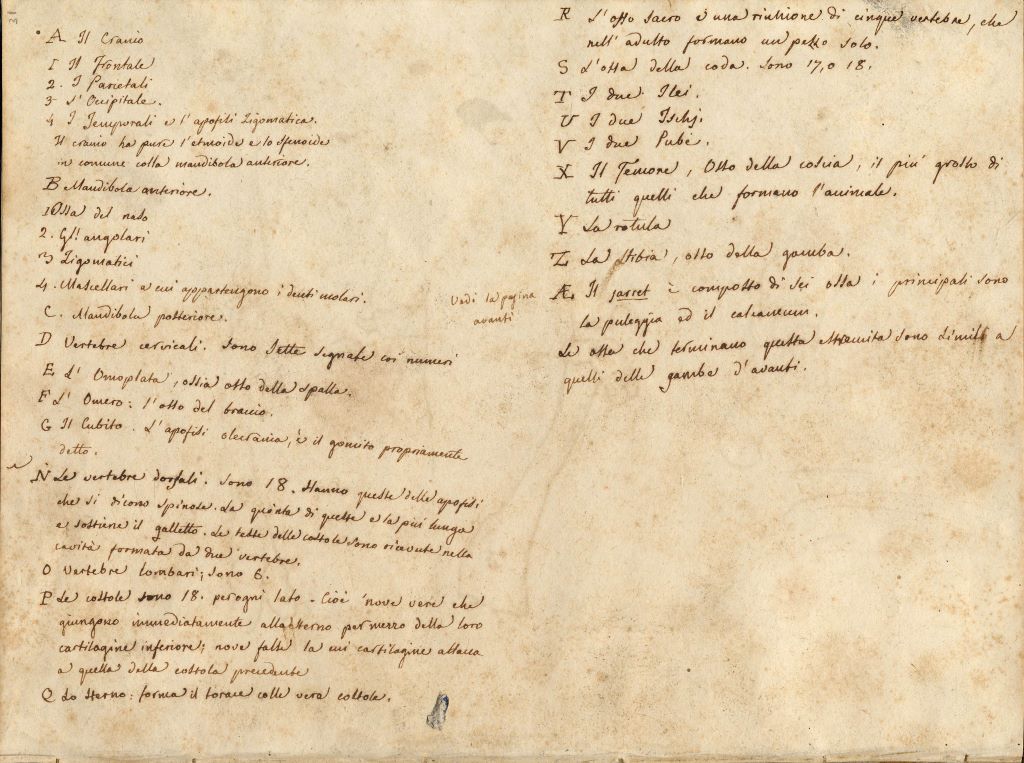 A Il Cranio
1 Il Frontale
2. I Parietali
3 L'Occipitale.
4 I Temporali e l'apofisi Zigomatica.
Il cranio ha pure l'etmoide e lo sfenoide
in comune colla mandibola anteriore.
B Mandibola anteriore.
1 Ossa del naso
2. Gli angolari
3 Zigomatici
4. Mascellari a cui appartengono i denti molari.
C. Mandibola posteriore.
D Vertebre cervicali. Sono Sette segnate coi numeri
E L'Omoplata, ossia osso della spalla.
F L'Omero: l'osso del braccio.
G Il Cubito. L'apofisi olecrania, è il gomito propriamente
detto.
N Le vertebre dorsali. Sono 18. Hanno queste delle apofisi
che si dicono spinose. La quinta di queste e la più lunga
e sostiene il galletto. Le teste delle costole sono ricevute nella
cavità formata da due vertebre.
O Vertebre lombari; sono 6.
P Le costole sono 18. per ogni lato. Cioè nove vere che
giungono immediatamente allo sterno per mezzo della loro
cartilagine inferiore; nove false la cui cartilagine attacca
a quella della costola precedente
Q Lo Sterno: forma il torace colle vere costole.
Vedi la pagina
avanti
R L'osso sacro è una riunione di cinque vertebre, che
nell'adulto formano un pezzo solo.
S L'ossa della coda. Sono 17, o 18.
T I due Ilei.
U I due Ischj.
V I due Pubi.
X Il Femore, Osso della coscia, il più grosso di
tutti quelli che formano l'animale.
Y La rotula
Z La tibia, osso della gamba.
Æ Il jarret è composto di sei ossa i principali sono
la puleggia ed il calcaneum.
Le ossa che terminano questa estremità sono simili a
quelli delle gambe d'avanti.